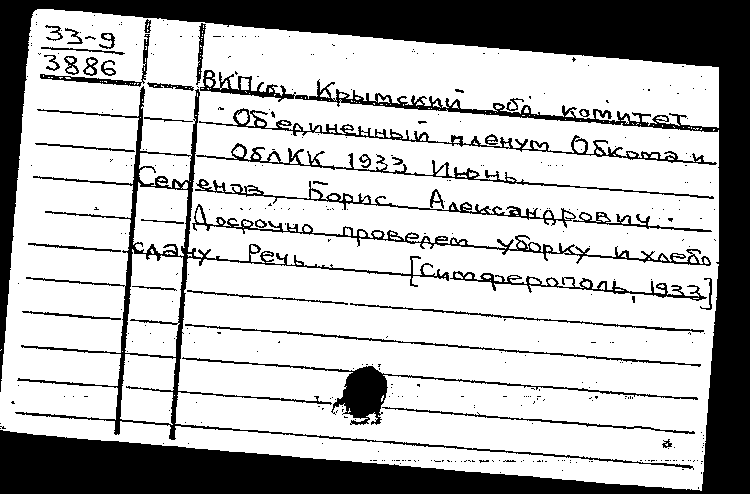 33-9
3886
ВКП(б). Крымский обл. комитет
Об'единенный пленум Обкома и
ОблКК. 1933. Июнь.
Семенов, Борис Александрович.
Досрочно проведем уборку и хлебо-
сдачу. Речь... [Симферополь, 1933]